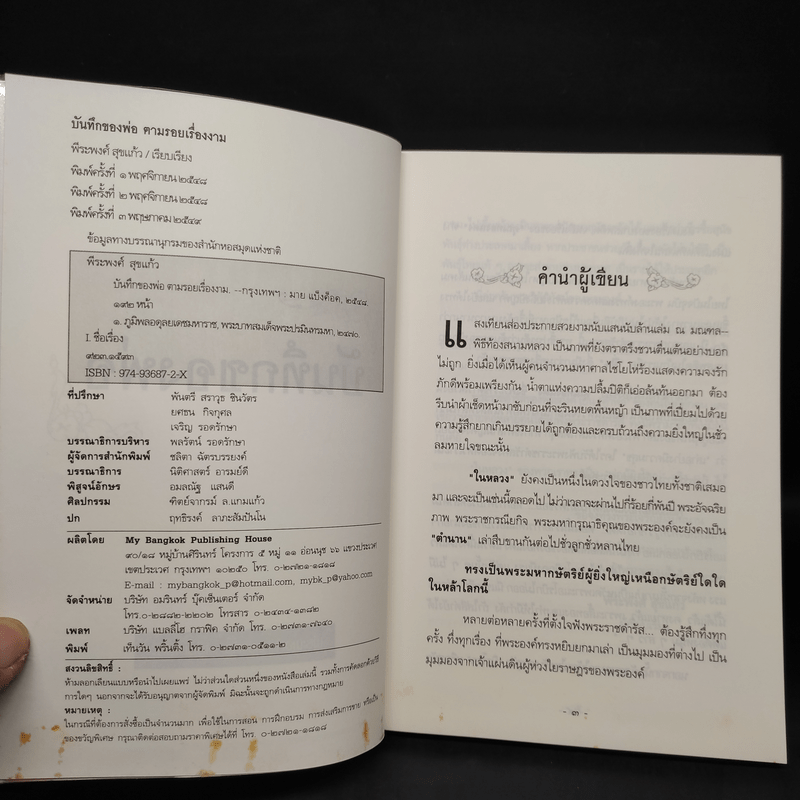 บันทึกของพ่อ ตามรอยเรื่องงาม
พีระพงศ์ สุขแก้ว / เรียบเรียง
พิมพ์ครั้งที่ ๑ พฤศจิกายน ๒๕๔๘
พิมพ์ครั้งที่ ๒ พฤศจิกายน ๒๕๔๘
พิมพ์ครั้งที่ ๓ พฤษภาคม ๒๕๔๙
ข้อมูลทางบรรณานุกรมของสำนักหอสมุดแห่งชาติ
พีระพงศ์ สุขแก้ว
บันทึกของพ่อ ตามรอยเรื่องงาม. --กรุงเทพฯ : มาย แบ็งค็อค, ๒๕๔๘.
๑๙๒ หน้า
๑. ภูมิพลอดุลยเดชมหาราช, พระบาทสมเด็จพระปรมินทรมหา, ๒๔๗๐.
I. ชื่อเรื่อง
๙๒๓.๑๕๙๓
ISBN : 974-93687-2-X
ที่ปรึกษา พันตรี สราวุธ ชินวัตร
ยศธน กิจกุศล
เจริญ รอดรักษา
บรรณาธิการบริหาร พลรัตน์ รอดรักษา
ผู้จัดการสำนักพิมพ์ ชลิตา ฉัตรบรรยงค์
บรรณาธิการ นิติศาสตร์ อารมย์ดี
พิสูจน์อักษร อมลณัฐ แสนดี
ศิลปกรรม ทิตย์จากรม์ ล.แกมแก้ว
ปก ฤทธิรงค์ ลาภะสัมปันโน
ผลิตโดย My Bangkok Publishing House
๙๐/๑๘ หมู่บ้านศิรินทร์ โครงการ ๕ หมู่ ๑๑ อ่อนนุช ๖๖ แขวงประเวศ
เขตประเวศ กรุงเทพฯ ๑๐๒๕๐ โทร. ๐-๒๗๒๑-๑๘๑๘
E-mail : mybangkok_p@hotmail.com, mybk_p@yahoo.com
จัดจำหน่าย บริษัท อมรินทร์ บุ๊คเซ็นเตอร์ จำกัด
โทร.๐-๒๘๘๒-๒๒๐๒ โทรสาร ๐-๒๔๓๔-๑๓๘๒
เพลท บริษัท แบลลี่โฮ กราฟิค จำกัด โทร. ๐-๒๗๓๑-๗๖๔๐
พิมพ์ เท็นวัน พริ้นติ้ง โทร. ๐-๒๗๓๑-๐๕๑๑-๒
สงวนลิขสิทธิ์ :
ห้ามลอกเลียนแบบหรือนำไปเผยแพร่ ไม่ว่าส่วนใดส่วนหนึ่งของหนังสือเล่มนี้ รวมทั้งการคัดลอกด้วยวิธี
การใดๆ นอกจากจะได้รับอนุญาตจากผู้จัดพิมพ์ มิฉะนั้นจะถูกดำเนินการทางกฎหมาย
หมายเหตุ :
ในกรณีที่ต้องการสั่งซื้อเป็นจำนวนมาก เพื่อใช้ในการสอน การฝึกอบรม การส่งเสริมการขาย หรือเป็น
ของขวัญพิเศษ กรุณาติดต่อสอบถามราคาพิเศษได้ที่ โทร. ๐-๒๗๒๑-๑๘๑๘
คำนำผู้เขียน
แสงเทียนส่องประกายสวยงามนับแสนนับล้านเล่ม ณ มณฑล--
พิธีท้องสนามหลวง เป็นภาพที่ยังตราตรึงชวนตื่นเต้นอย่างบอก
ไม่ถูก ยิ่งเมื่อได้เห็นผู้คนจำนวนมหาศาลไชโยโห่ร้องแสดงความจงรัก
ภักดีพร้อมเพรียงกัน น้ำตาแห่งความปลื้มปิติก็เอ่อล้นท้นออกมา ต้อง
รีบนำผ้าเช็ดหน้ามาซับก่อนที่จะรินหยดพื้นหญ้า เป็นภาพที่เปี่ยมไปด้วย
ความรู้สึกยากเกินบรรยายได้ถูกต้องและครบถ้วนถึงความยิ่งใหญ่ในชั่ว
ลมหายใจขณะนั้น
"ในหลวง" ยังคงเป็นหนึ่งในดวงใจของชาวไทยทั้งชาติเสมอ
มา และจะเป็นเช่นนี้ตลอดไป ไม่ว่าเวลาจะผ่านไปกี่ร้อยกี่พันปี พระอัจฉริย
ภาพ พระราชกรณียกิจ พระมหากรุณาธิคุณของพระองค์จะยังคงเป็น
"ตำนาน" เล่าสืบขานกันต่อไปชั่วลูกชั่วหลานไทย
ทรงเป็นพระมหากษัตริย์ผู้ยิ่งใหญ่เหนือกษัตริย์ใดใด
ในหล้าโลกนี้
หลายต่อหลายครั้งที่ตั้งใจฟังพระราชดำรัส... ต้องรู้สึกทึ่งทุก
ครั้ง ทึ่งทุกเรื่อง ที่พระองค์ทรงหยิบยกมาเล่า เป็นมุมมองที่ต่างไป เป็น
มุมมองจากเจ้าแผ่นดินผู้ห่วงใยราษฎรของพระองค์
- ๓ -